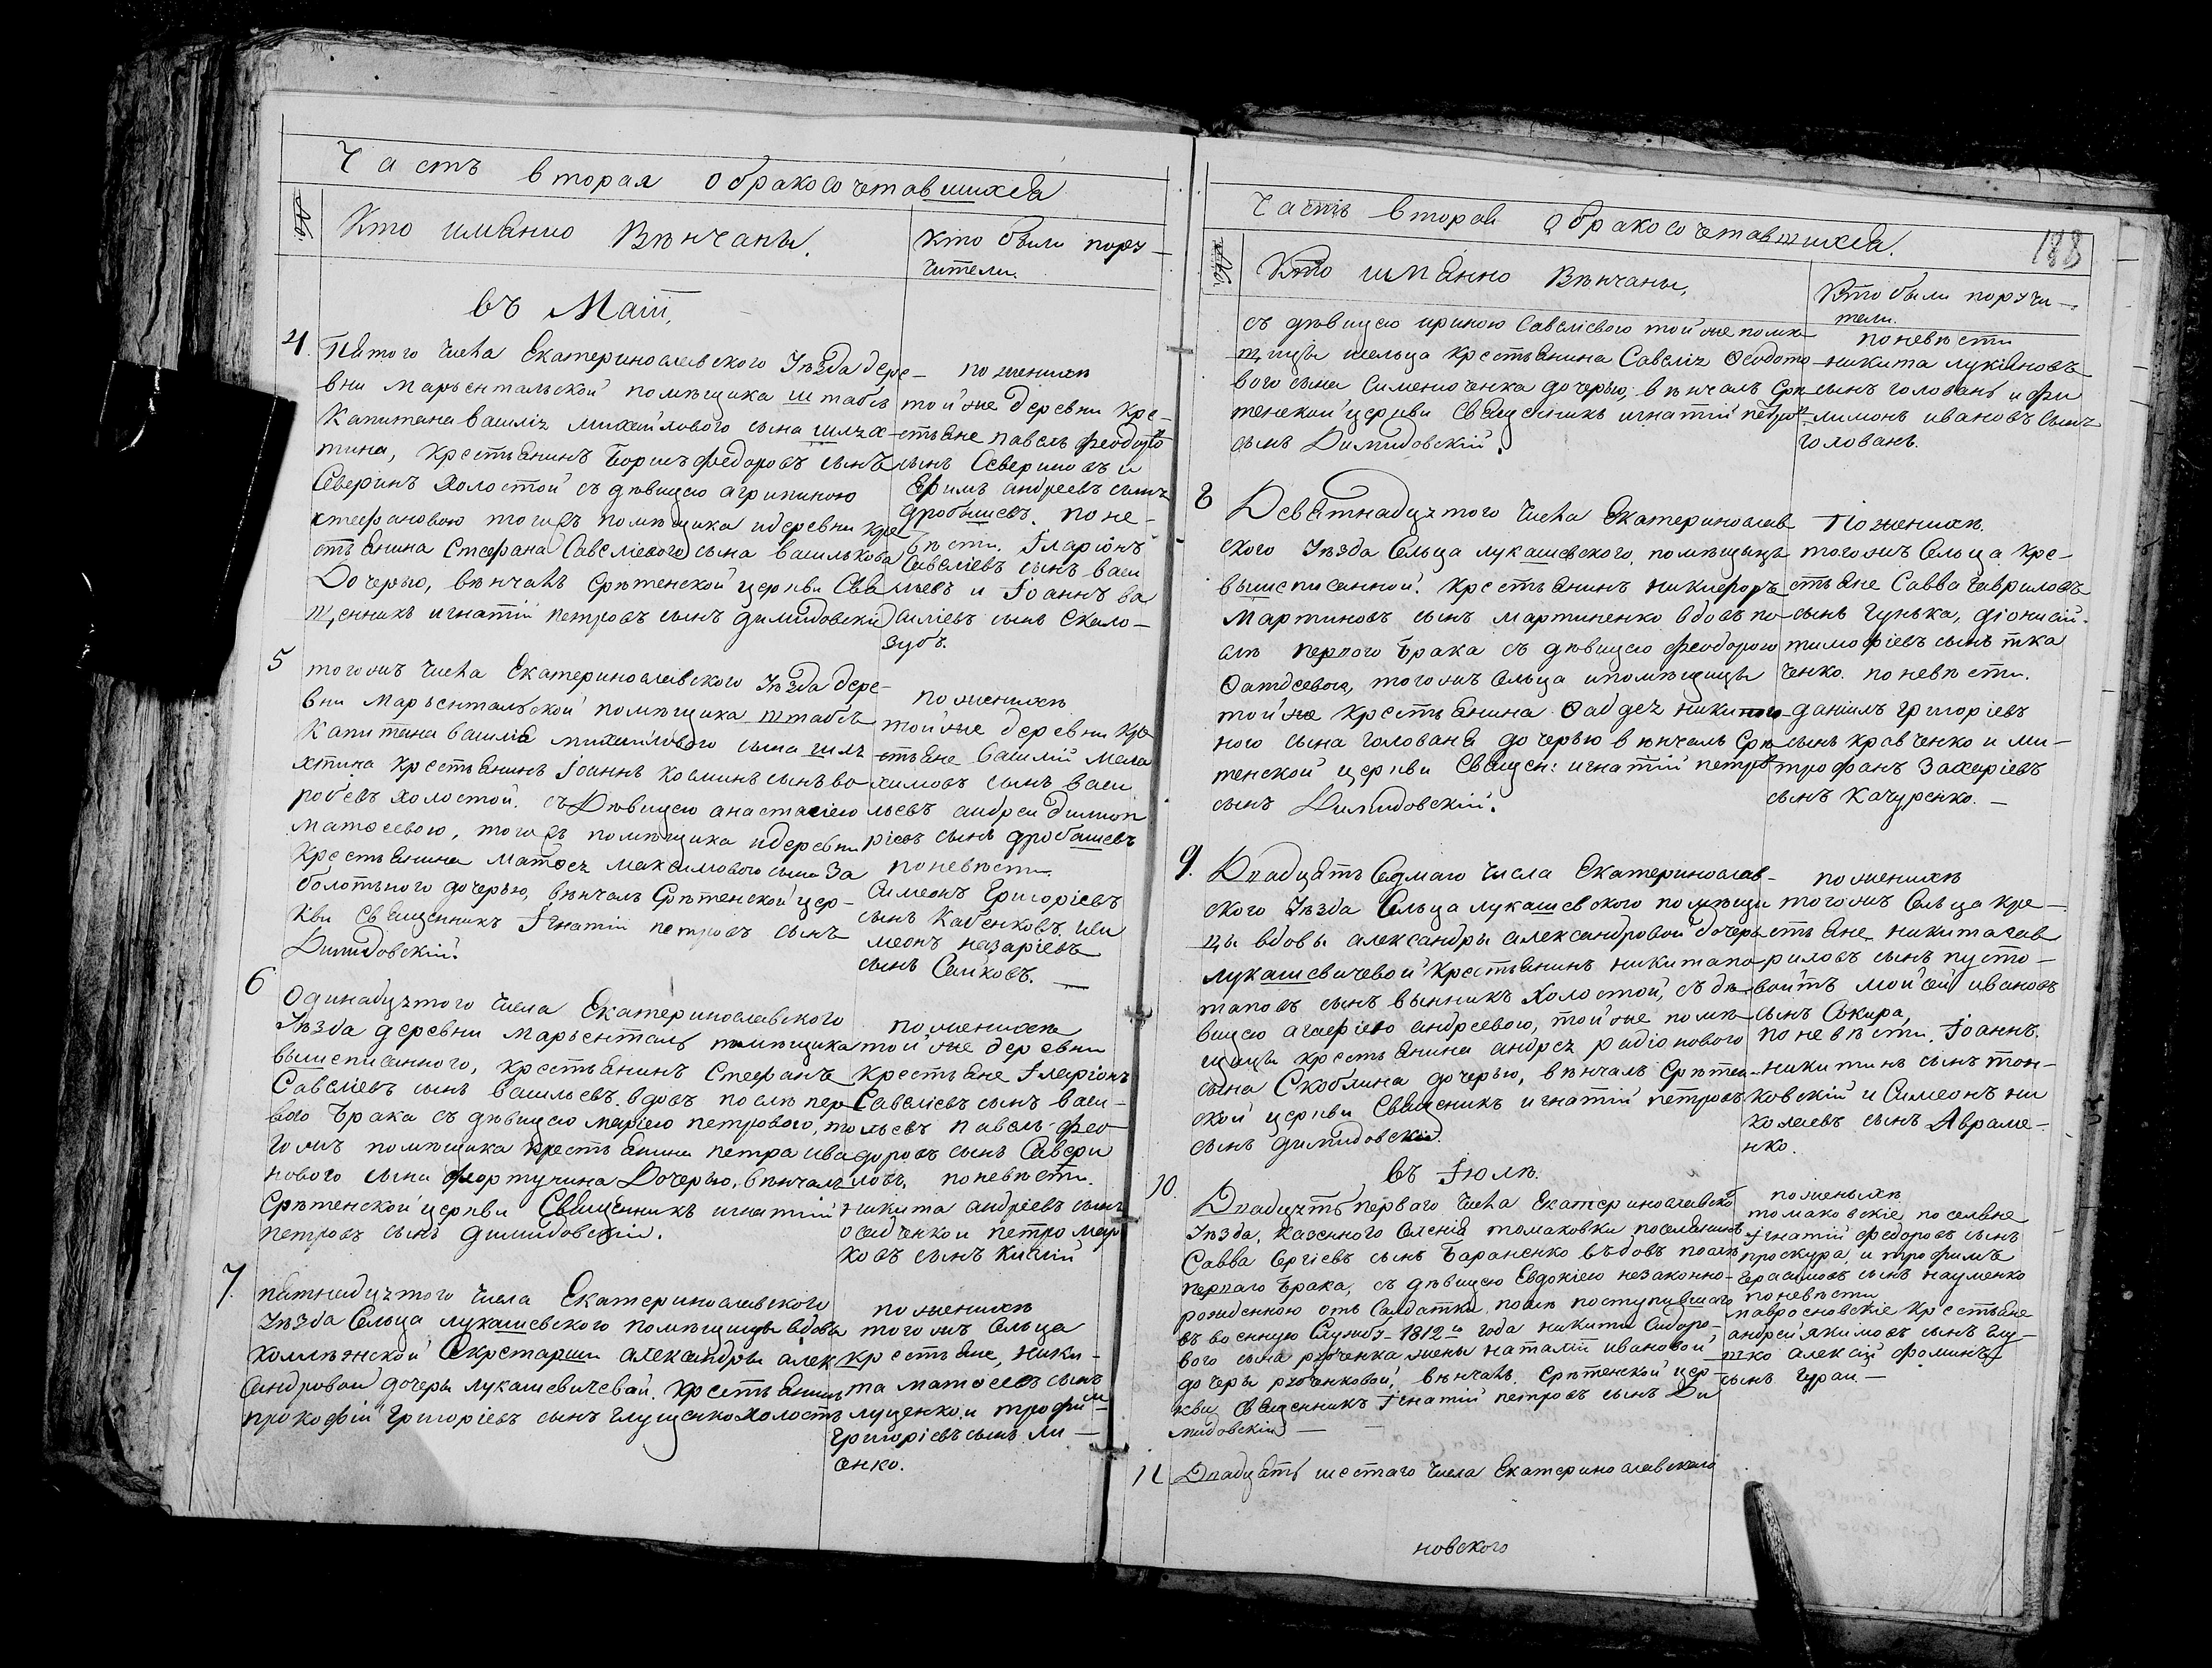 Часть вторая о бракосочетавшихся
№
Кто именно Вѣнчаны.
Кто были пору-
чители.
Въ Маіи,
4.
Пятого числа Екатеринославского Уѣзда дере-
вни Марьентальской помѣщика штабсъ
Капитана василіа михайлового сына шилах-
тина, крестьянинъ Борисъ Федоровъ сынъ
Северинъ холостой съ дѣвицею агрипиною
стефановою тогожъ помѣщика идеревни кре
стьянина Стефана Савеліевого сына васильковa
Дочерью, вѣнчалъ Срѣтенской церкви Свя
щенникъ игнатій петровъ сынъ димидовскій
по женихѣ
той же деревни кре-
стьяне павелъ феодоро
сынъ Севериновъ и
Ефимъ андреевъ сынъ
дробышевъ. поне-
вѣсти. Іларіонъ
Савеліевъ сынъ васи
льевъ и Іоаннъ ва
силіевъ сынъ Скало-
зубъ.
5
тогожъ числа Екатеринославского Уѣзда дере-
вни Марьентальской помѣщика штабсъ
Капитана василіа михайлового сына шила
хтина крестьянинъ Іоаннъ козминъ сынъ во
робьевъ холостой. съ Дѣвицею анастасіею
матѳеевою, тогожъ помѣщика идеревни
крестьянина матѳеа максимового сына За
болотьного дочерью, вѣнчалъ Срѣтенской цер-
кви Священникъ Ігнатій петровъ сынъ
Димидовскій.
по женихѣ
той же деревни кре
стьяне василій мала
химовъ сынъ васи
льевъ андреи димит
ріевъ сынъ дробашевъ
поневѣсти
Симеонъ Григоріевъ
сынъ Кабенковъ. иси
меонъ назаріевъ
сынъ Сашковъ.
6
Одинадцатого числа Екатеринославского
Уѣзда деревни Марьенталь помѣщика
вышеписанного, крестьянинъ Стефанъ
Савеліевъ сынъ Васильевъ. вдовъ послѣ пер
вого брака съ дѣвицею маріею петрового, то
гожъ помѣщика крестьянина петра ива
нового сына фортунина Дочерью, вѣнчалъ
Срѣтенской церкви Священникъ игнатій
петровъ сынъ димидовскій.
по женихѣ
той же деревни
крестьяне Іларіонъ
Савеліевъ сынъ васи-
льевъ павелъ фео-
доровъ сынъ Савери
новъ, поневѣсти.
Никита андріевъ сынъ
осадченко и петро мар
ковъ сынъ кислій
7.
пятнадцатого числа Екатеринославского
Уѣзда Сельца лукашевского помѣщицы вдовы
коллѣжской Секретарши александры алек
сандровой дочеры лукашевичевай. крестьянинъ
прокофій Григоріевъ сынъ глущенко холостъ
по женихѣ
тогожъ Сельца
крестьяне, Ники-
та матѳеевъ сынъ
луценко. и трофим
Григоріевъ сынъ Ли-
сенко.
Часть вторая о бракосочетавшихся.
188
№
Кто именно Вѣнчаны,
Кто были поручи-
тели.
съ дѣвицею ириною Савеліевого той же помѣ
щицы сельца крестьянина Савеліа Ѳеодото
вого сына Сименюченка дочерью, вѣнчалъ Срѣ
тенской церкви Священникъ игнатій петровъ
сынъ Димидовскій.
поневѣсти
никита лукяновъ
сынъ голованъ и фи
лимонъ ивановъ сынъ
голованъ.
8
Девятнадцатого числа Екатеринослав
ского Уѣзда Сельца лукашевского, помѣщицы
вышеписанной. крестьянинъ никифоръ
мартиновъ сынъ мартиненко вдовъ по-
слѣ первого брака съ дѣвицею феодорою
Ѳатдеевою, тогожъ Сельца ипомѣщицы
той же крестьянина Ѳаддеа никитино-
ного сына голована дочерью вѣнчалъ Срѣ
тенской церкви Священ: игнатій петров
сынъ Димидовскій.
По женихѣ.
тогожъ Сельца кре-
стьяне Савва гавриловъ
сынъ гунька, діонисій
тимофіевъ сынъ тка
ченко. поневѣсти.
даніилъ григоріевъ
сынъ кравченко и ми-
трофанъ Захаріевъ
сынъ Качуренко.
9.
Двадцать Седмаго числа Екатеринослав-
ского Уѣзда Сельца лукашевского помѣщи
цы вдовы александры александровой дочеры
лукашевичевой крестьянинъ никита по
таповъ сынъ вынникъ холостой, съ дѣ
вицею агафіею андреевою, той же помѣ
щицы крестьянина андреа радіонового
сына Скоблина дочерью, вѣнчалъ Срѣтен-
ской церкви Священикъ игнатій петровъ
сынъ димидовскій.
по женихѣ
тогожъ Сельца кре-
стьяне никита гав
риловъ сынъ пусто-
войтъ мойсей ивановъ
сынъ Сокира,
поневѣсти. Іоаннъ
никитинъ сынъ тон-
ковскій и Симеонъ ни
колаевъ сынъ Авраме-
нко.
въ Іюлѣ.
10.
Двадцать первого числа Екатеринославского
Уѣзда, казенного Селеніа томаковки поселянинъ
Савва Сергіевъ сынъ Бараненко вѣдовъ послѣ
первого брака, съ дѣвицею Евдокіею незаконно-
рожденною отъ Салдатки, послѣ поступившого
въ военную Службу 1812го года никиты Сидоро-
вого сына рябченка жены наталіи ивановой,
дочеры рябченковой, вѣнчалъ. Срѣтенской цер-
кви Священникъ Ігнатій петровъ сынъ Ди
мидовскій
поженыхѣ
томаковскіе поселяне
Ігнатій федоровъ сынъ
проскура, и трофимъ
Герасимовъ сынъ науменко
поневѣсти
крестьяне
андрей якимовъ сынъ глу-
шко алексій фоминъ
сынъ гурай.
11
Двадцать шестаго числа Екатеринославского
новского